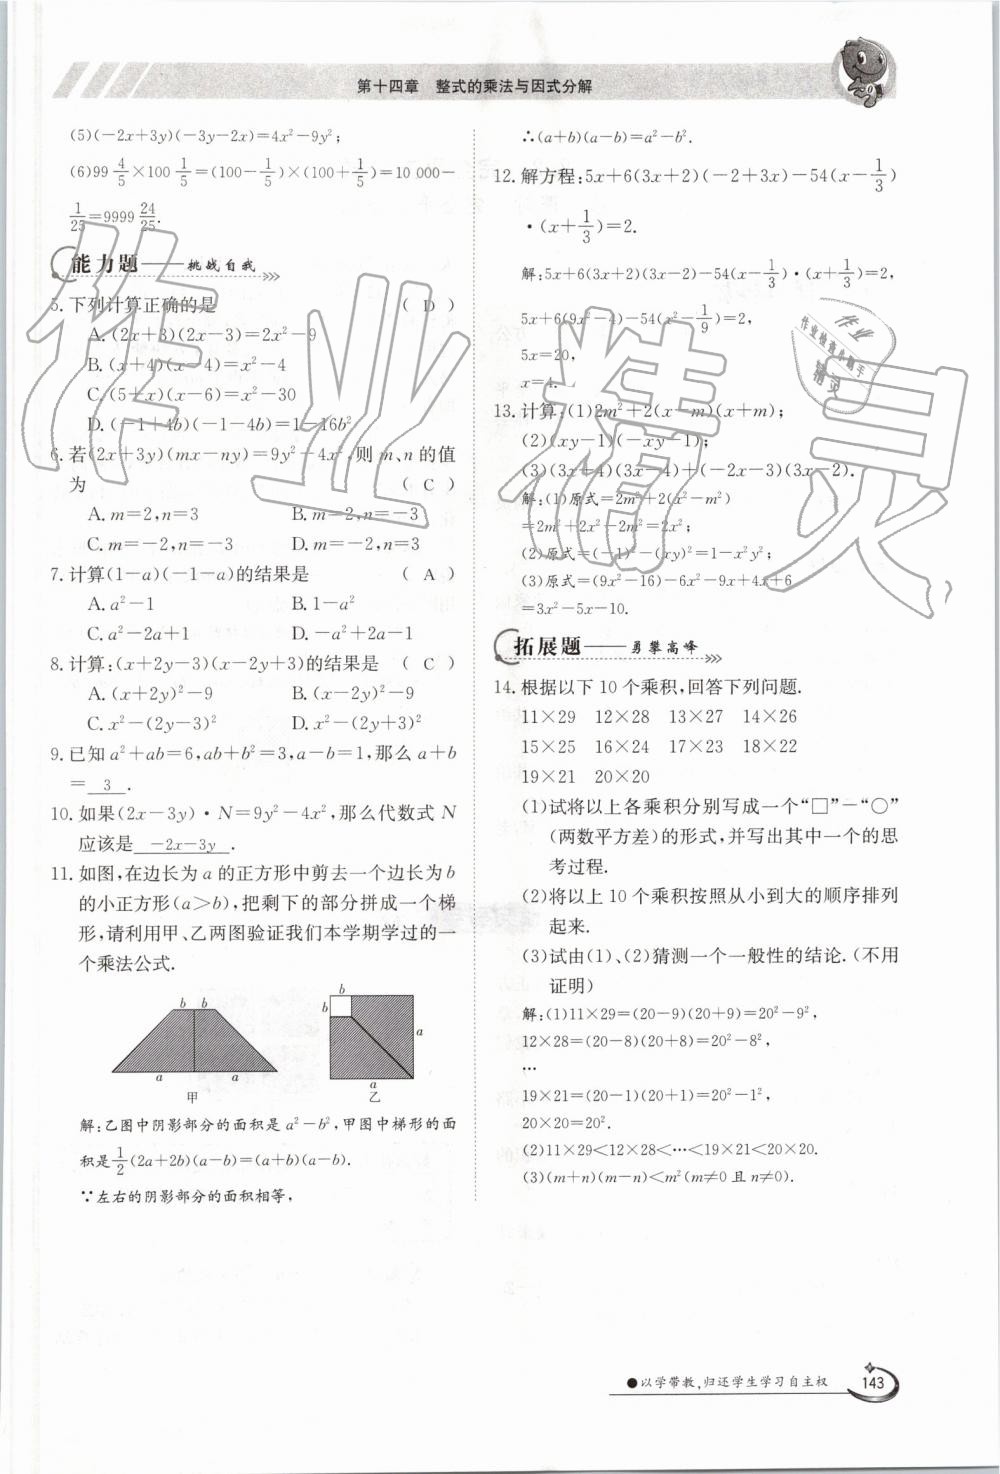 第十四章 整式的乘法与因式分解
(5)(-2x+3y)(-3y-2x)=4x²-9y²;
(6)99 4/5×100 1/5=(100-1/5)×(100+1/5)=10 000-
1/25=9999 24/25.
能力题——挑战自我
5.下列计算正确的是 ( D )
A.(2x+3)(2x-3)=2x²-9
B.(x+4)(x-4)=x²-4
C.(5+x)(x-6)=x²-30
D.(-1+4b)(-1-4b)=1-16b²
6.若(2x+3y)(mx-ny)=9y²-4x²,则m、n的值
为 ( C )
A.m=2,n=3 B.m=2,n=-3
C.m=-2,n=-3 D.m=-2,n=3
7.计算(1-a)(-1-a)的结果是 ( A )
A.a²-1 B.1-a²
C.a²-2a+1 D.-a²+2a-1
8.计算:(x+2y-3)(x-2y+3)的结果是 ( C )
A.(x+2y)²-9 B.(x-2y)²-9
C.x²-(2y-3)² D.x²-(2y+3)²
9.已知a²+ab=6,ab+b²=3,a-b=1,那么a+b
=3.
10.如果(2x-3y)·N=9y²-4x²,那么代数式N
应该是 -2x-3y .
11.如图,在边长为a的正方形中剪去一个边长为b
的小正方形(a>b),把剩下的部分拼成一个梯
形,请利用甲、乙两图验证我们本学期学过的一
个乘法公式.
b b
a a
甲
b
b
a
a
乙
解:乙图中阴影部分的面积是a²-b²,甲图中梯形的面
积是1/2(2a+2b)(a-b)=(a+b)(a-b).
∵左右的阴影部分的面积相等,
∴(a+b)(a-b)=a²-b².
12.解方程:5x+6(3x+2)(-2+3x)-54(x-1/3)
·(x+1/3)=2.
解:5x+6(3x+2)(3x-2)-54(x-1/3)·(x+1/3)=2,
5x+6(9x²-4)-54(x²-1/9)=2,
5x=20,
x=4.
13.计算:(1)2m²+2(x-m)(x+m);
(2)(xy-1)(-xy-1);
(3)(3x+4)(3x-4)+(-2x-3)(3x-2).
解:(1)原式=2m²+2(x²-m²)
=2m²+2x²-2m²=2x²;
(2)原式=(-1)²-(xy)²=1-x²y²;
(3)原式=(9x²-16)-6x²-9x+4x+6
=3x²-5x-10.
拓展题——勇攀高峰
14.根据以下10个乘积,回答下列问题.
11×29 12×28 13×27 14×26
15×25 16×24 17×23 18×22
19×21 20×20
(1)试将以上各乘积分别写成一个“□”-“○”
(两数平方差)的形式,并写出其中一个的思
考过程.
(2)将以上10个乘积按照从小到大的顺序排列
起来.
(3)试由(1)、(2)猜测一个一般性的结论.(不用
证明)
解:(1)11×29=(20-9)(20+9)=20²-9²,
12×28=(20-8)(20+8)=20²-8²,
…
19×21=(20-1)(20+1)=20²-1²,
20×20=20².
(2)11×29<12×28<…<19×21<20×20.
(3)(m+n)(m-n)<m²(m≠0且n≠0).
●以学带教,归还学生学习自主权 143
作业精灵
作业
作业检查小助手
精灵